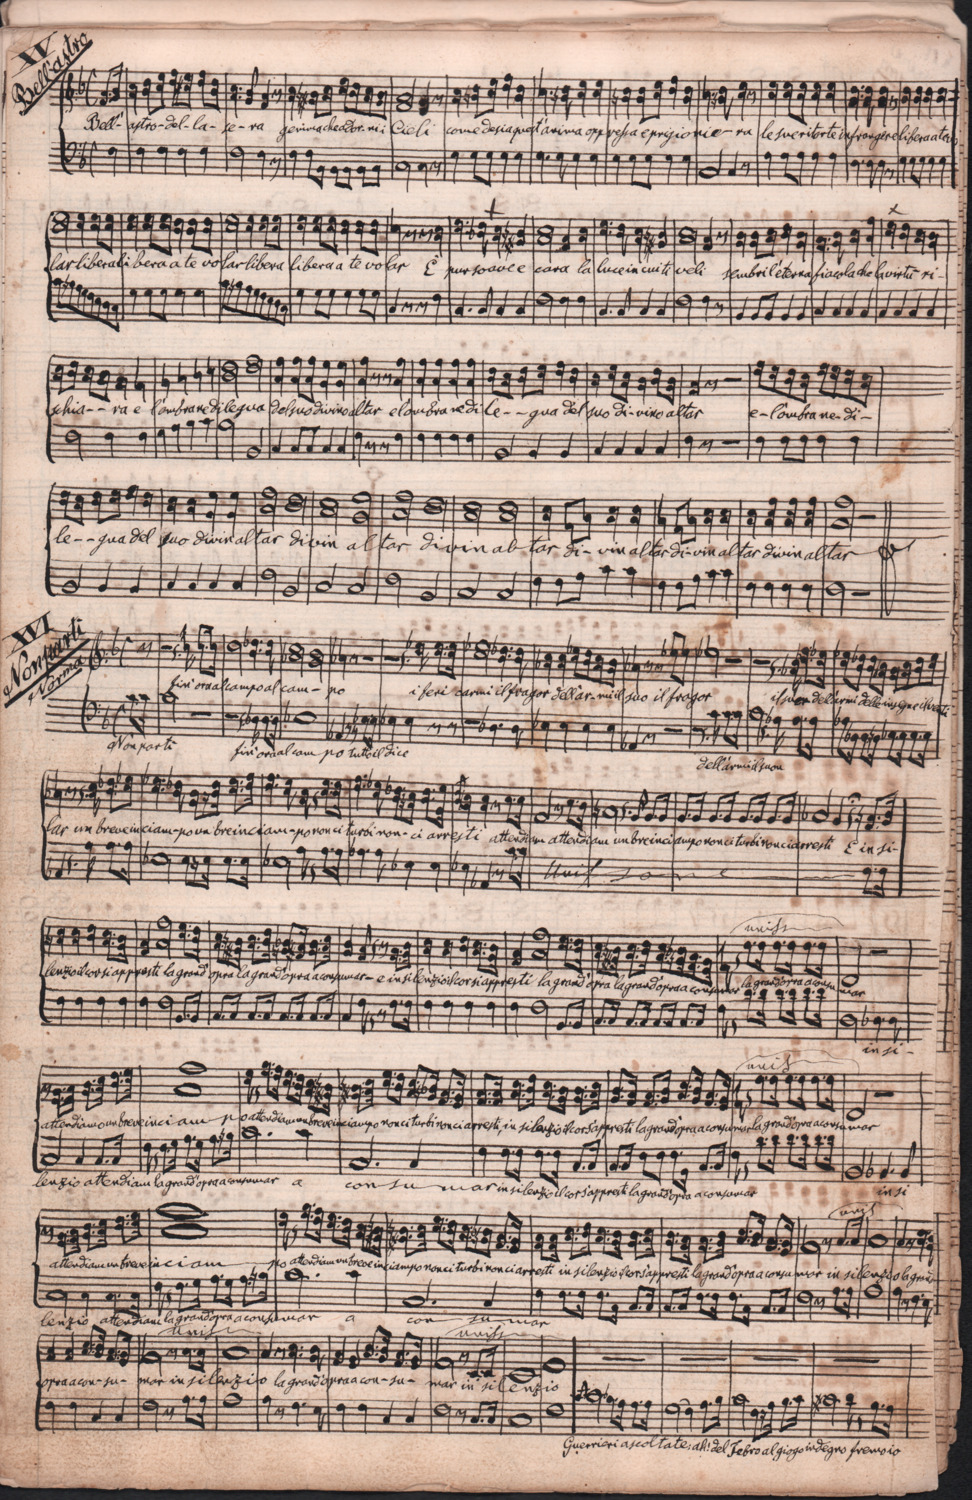 XV
Bell'astro
Bell'- astro-del-la- se-ra gemma che ador-ni i Cieli come desia quest'anima oppressa e prigionie-ra le sue ritorte infrangere libera a te vo
lar libera libera a te volar libera libera a te volar E pur soave e cara la luce in cui ti veli sembri l'eterna fiacola che la virtù ri-
schia-- ra e l'ombra ne dilegua del suo divino altar e l'ombra ne dile-- gua del suo di-vino altar e-l'ombra-ne-di-
le--gua del suo divin altar divin altar divin al-tar di-vin altar di-vin altar divin altar
XVI
Non parti
Norma
fin'ora al campo al cam-po i feri carmi il fragor dell'ar-mi il suo il fragor il suon dell'armi delle insegne il
Non parti fin'ora al cam po tutto dice dell'armi il suon
lar un breve inciam-po un breinciam-po non ci turbi non-ci arresti attendiam attendiam un breinciampo non ci turbi non ci arresti E in si-
Unis sono
uniss
lenzio il cor si appresti la grand'opra la grand'opra a consumar-e in silenzio il cor si appresti la grand'opra la grand'opra a consumar la grand'opra a consumar
in si-
unis
attendiam un breve inciam po attendiam un breve inciampo non ci turbi non ci arresti, in silenzio il cor s'appresti la grand'opra a consumar la grand'opra a consumar
lenzio attendiam la grand'opra a consumar a consumar in silenzio il cor s'appresti la grand'opra a consumar in si
unis
attendiam un breve inciam po attendiam un breve inciampo non ci turbi non ci arresti in silenzio il cor s'appresti la grand'opra a consu mar in silenzio la grand
lenzio attendiam la grand'opra a consumar a con su mar
uniss uniss
opra a con-su- mar in silenzio la grand'opra a con-su- mar in silenzio
Guerrieri ascoltate: ah! del Tebro al giogo indegno fremo io